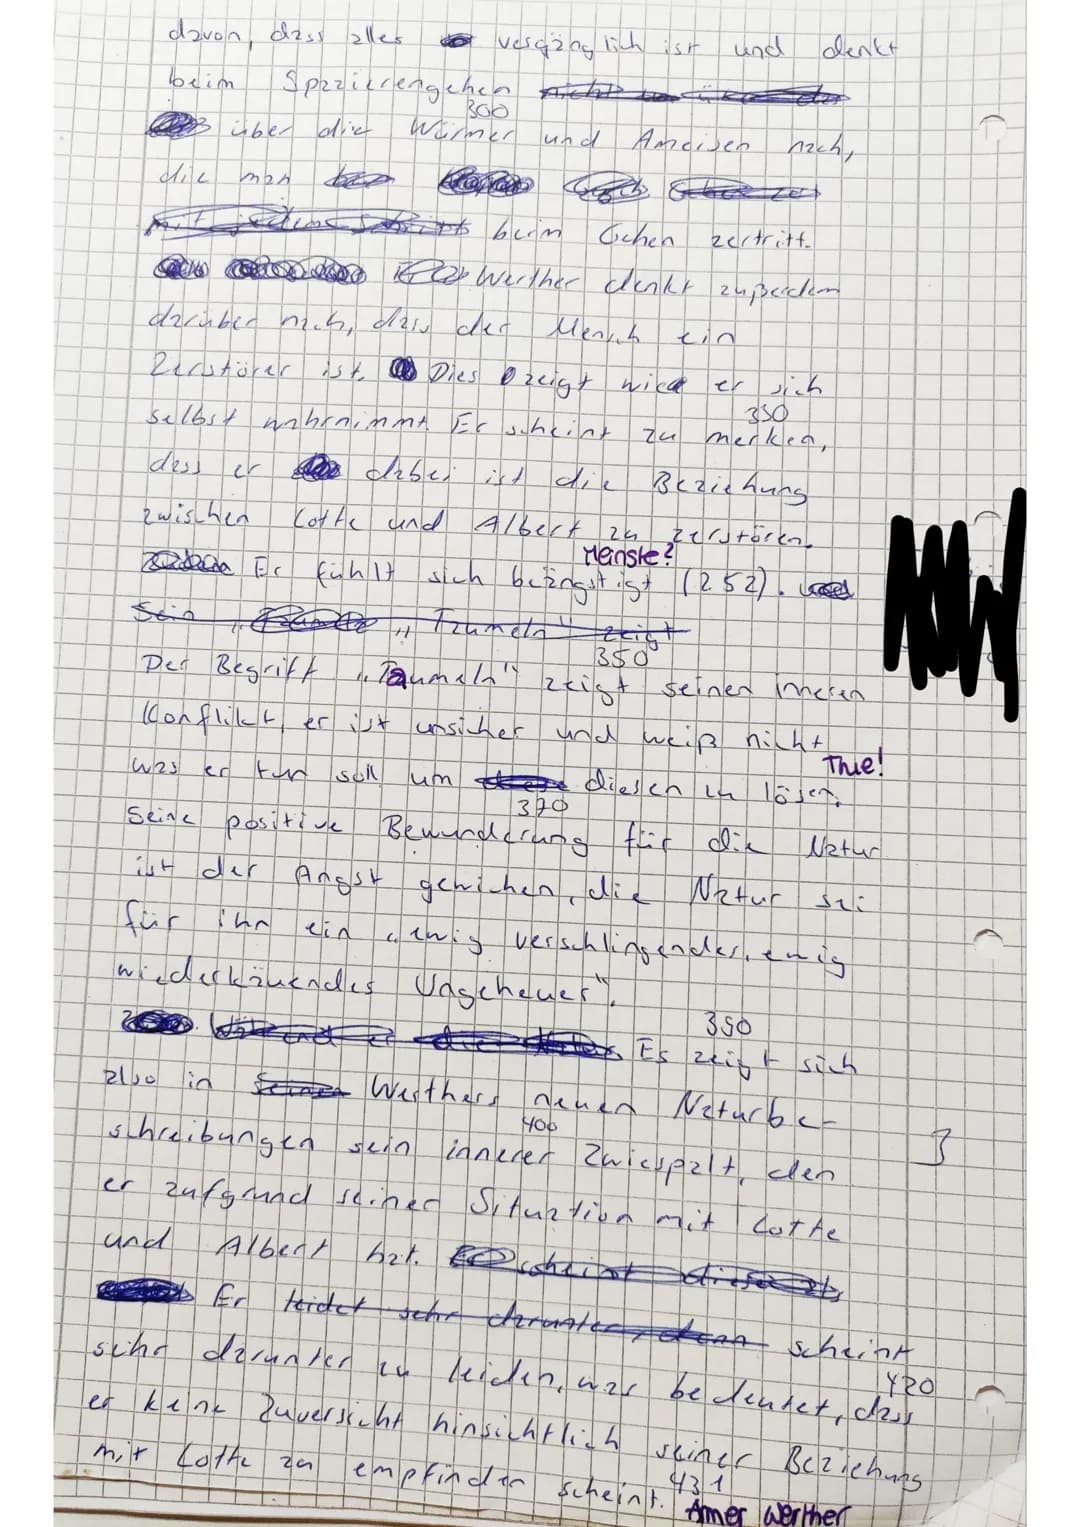 davon, dass alles vergänglich ist und denkt
beim Spazierengehen
300
über die Würmer und Ameisen nach,
die man
beim Gehen zertritt.
Werther denkt außerdem
darüber nach, dass der Mensch ein
Zerstörer ist. Dies zeigt wie er sich
350
selbst wahrnimmt. Er scheint zu merken,
dass er dabei ist die Beziehung
zwischen Lotte und Albert zu zerstören.
Meinste?
Er fühlt sich beängstigt (Z 52).
Sein "Taumeln" zeigt
350
Der Begriff "Taumeln" zeigt seinen inneren
Konflikt, er ist unsicher und weiß nicht
True!
was er tun soll um diesen zu lösen.
370
Seine positive Bewunderung für die Natur
ist der Angst gewichen, die Natur sei
für ihn ein "ewig verschlingendes, ewig
wiederkäuendes Ungeheuer".
390
Es zeigt sich
also in Werthers neuen Naturbe-
400
schreibungen sein innerer Zwiespalt, den
er aufgrund seiner Situation mit Lotte
und Albert hat.
Er leidet sehr darunter, denn scheint
sehr darunter zu leiden, was bedeutet, dass
420
er keine Zuversicht hinsichtlich seiner Beziehung
mit Lotte zu empfinden scheint.
431
Armer Werther